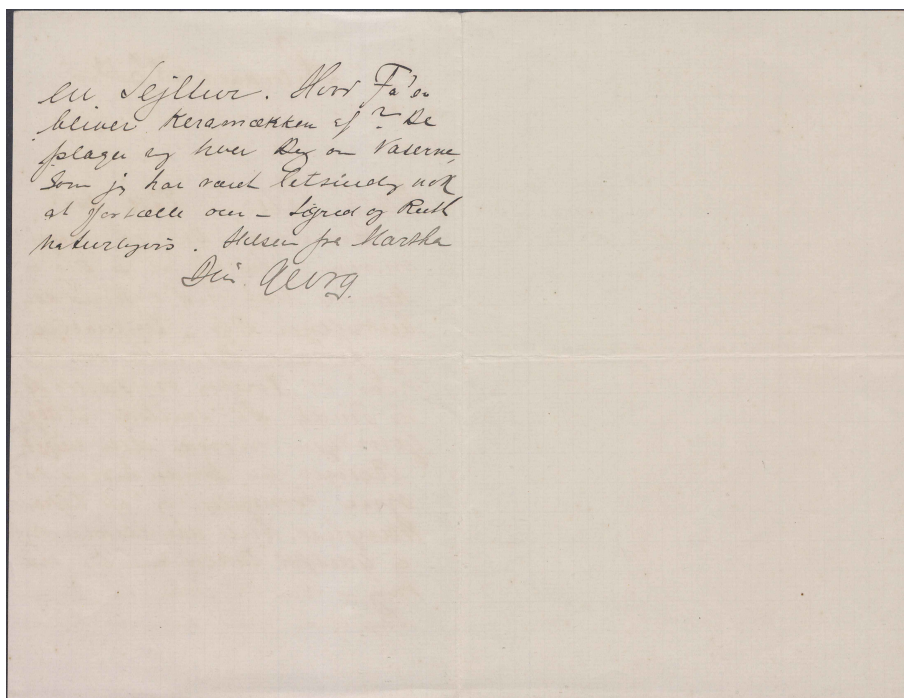 en Sejltur. Hvor Fa'en
bliver Keramækken af? De
plager mig hver Dag om Vaserne,
som jeg har været letsindig nok
at fortælle om – Sigrid og Ruth
naturligvis. Hilsen fra Martha
Din Georg.